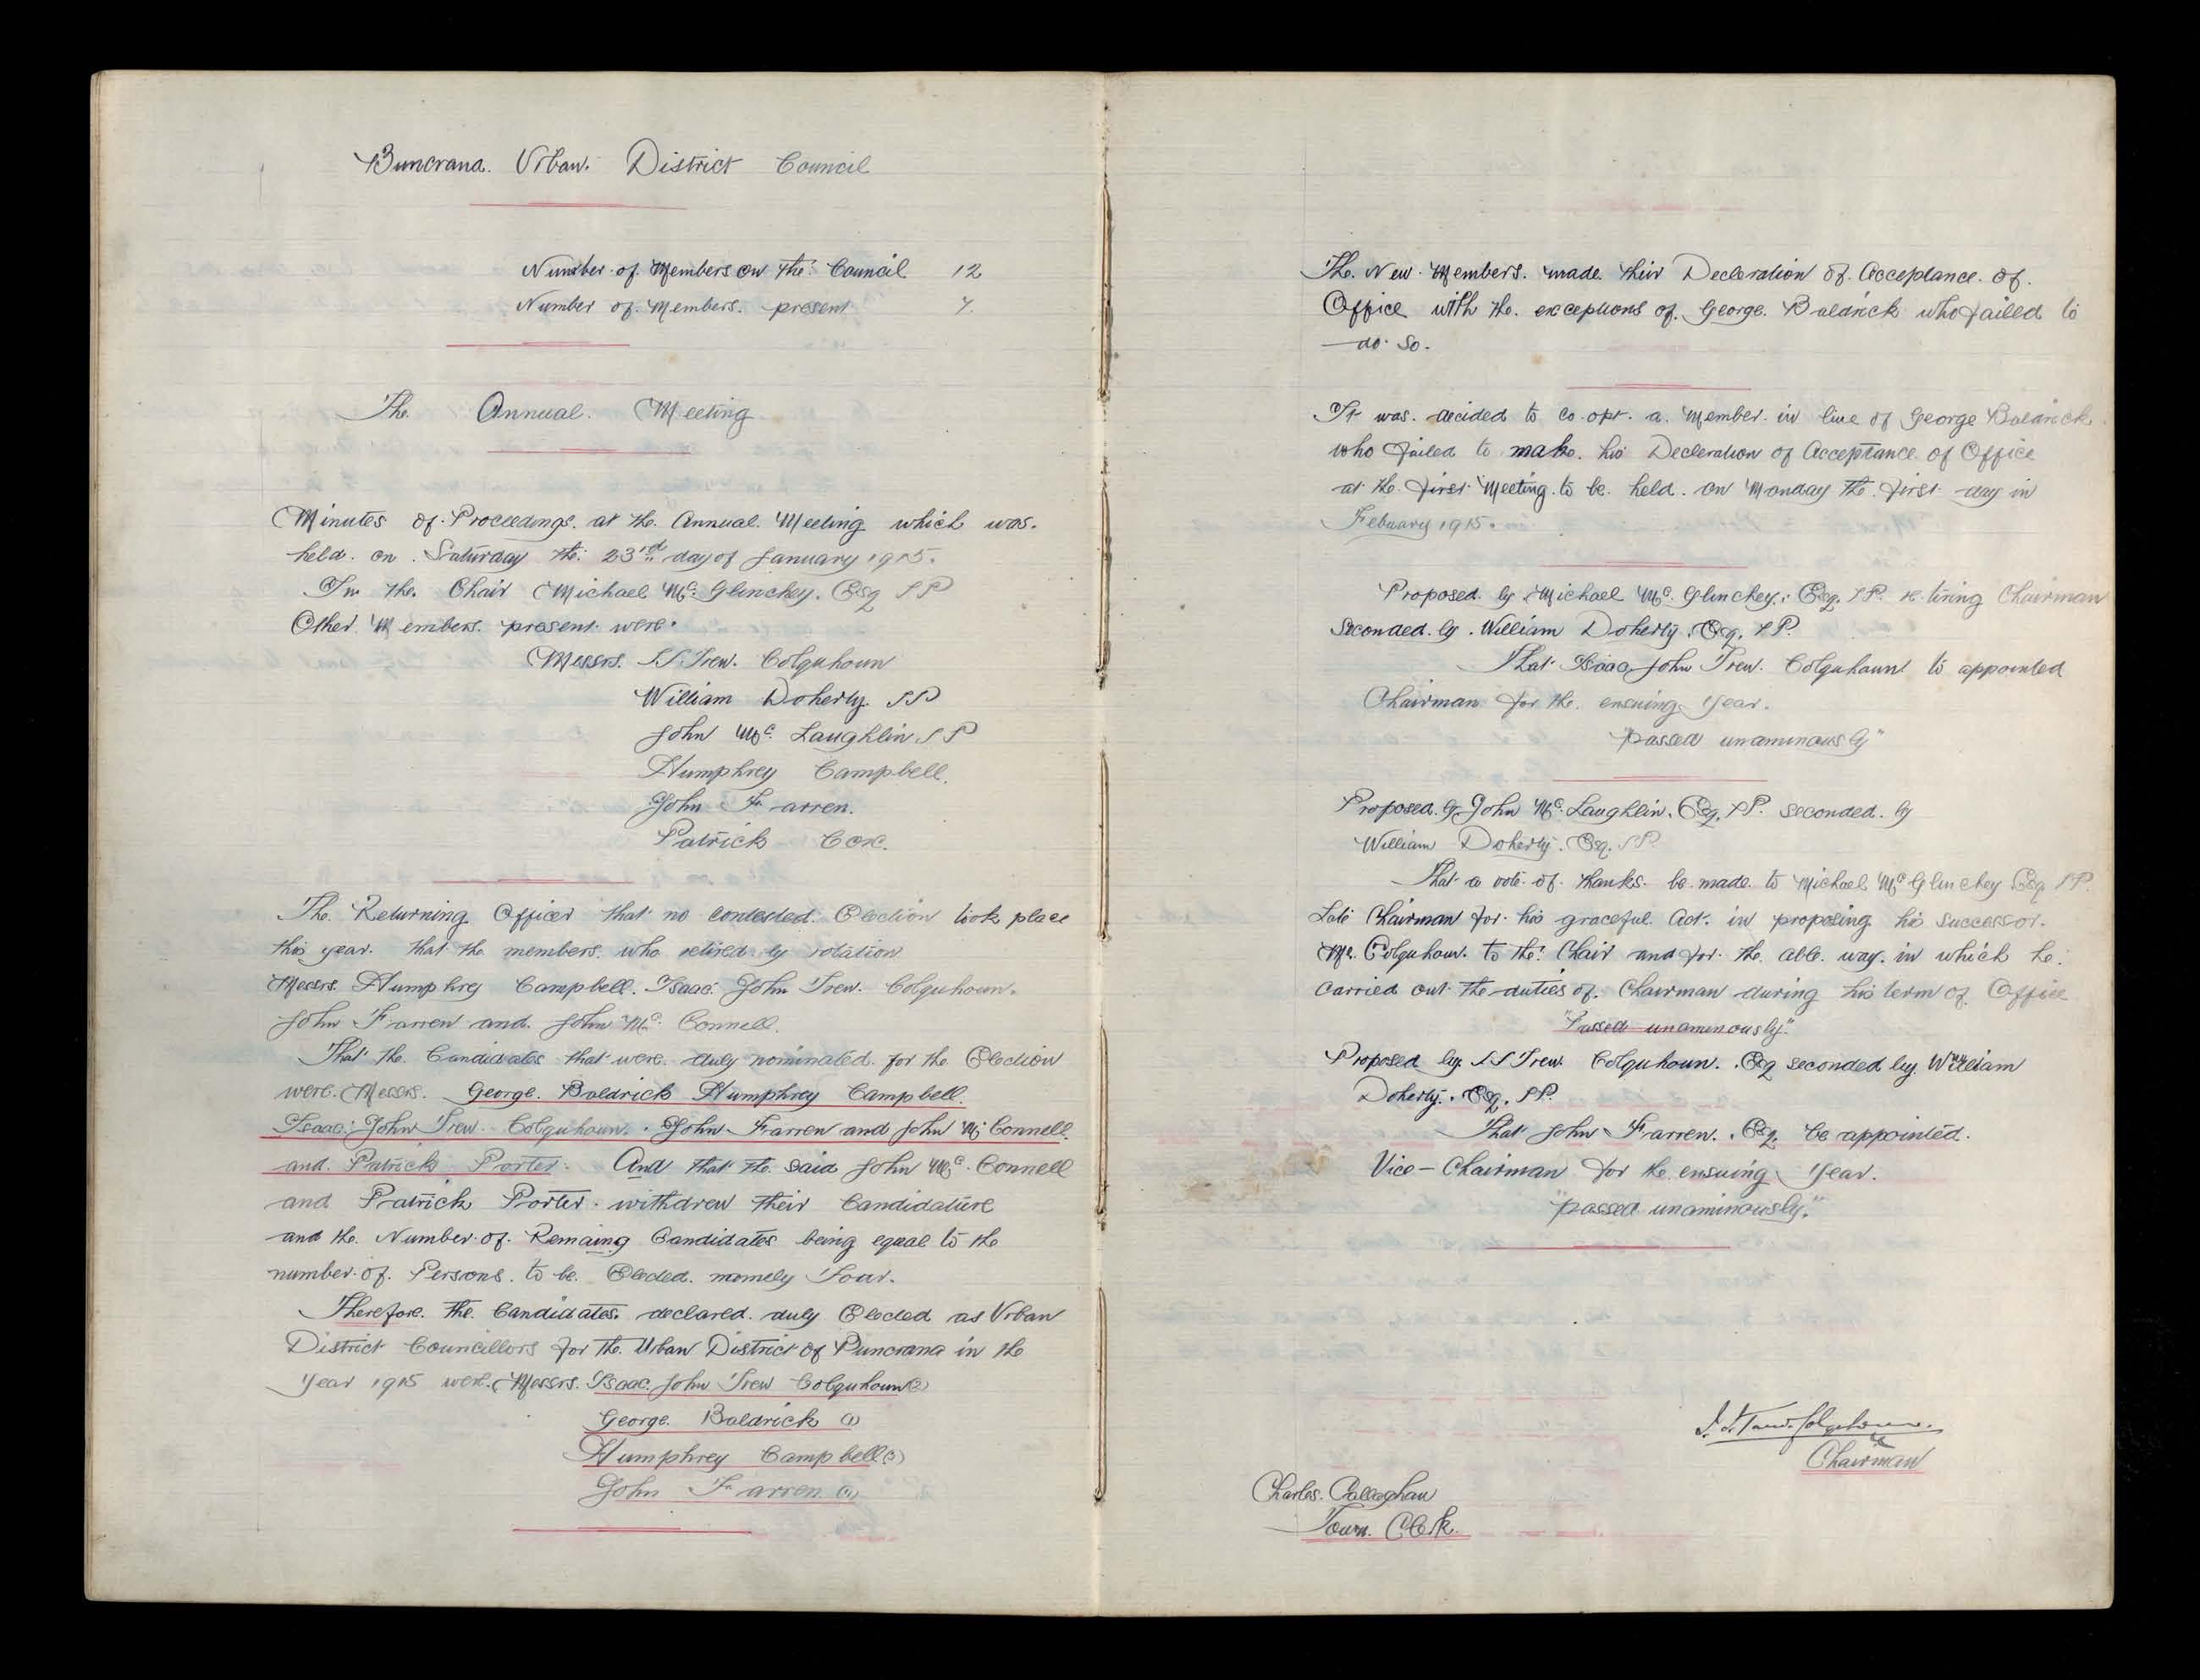 Buncrana. Urban. District Council
Number of Members on the Council 12
Number of Members. present 7.
The. Annual. Meeting
Minutes of Proceedings. at the Annual. Meeting which was.
held. on. Saturday the 23rd day of January 1915.
In the. Chair Michael Mc. Glinchey. Esq J P
Other Members. present were.
Messrs. I J Trew. Colquhoun
William Doherty. J P
John Mc. Laughlin J P
Humphrey Campbell.
John Farren.
Patrick Cox.
The. Returning Officer that no contested. Election took place
this year. that the members. who retired by rotation
Messrs. Humphrey Campbell. Isaac John Trew. Colquhoun.
John Farren and. John Mc. Connell.
That the Candidates that were duly nominated for the Election
were. Messrs. George. Baldrick Humphrey Campbell.
Isaac John Trew. Colquhoun. John Farren and John Mc Connell.
and. Patrick Porter. And that the said John Mc. Connell
and Patrick Porter. withdrew their Candidature
and the. Number of. Remaing Candidates being equal to the
number of. Persons. to be. Elected. namely Four.
Therefore. the. Candidates. declared. duly Elected as Urban
District Councillors for the Urban District of Buncrana in the
Year 1915 were. Messrs. Isaac. John Trew Colquhoun (2)
George. Baldrick (1)
Humphrey Campbell (3)
John Farren (4)
The. New Members. made their Decleration of. Acceptance. of.
Office with the. exceptions of. George. Baldrick who failed to
do so.
It was. decided to co-opt. a. Member. in liue of George Baldrick.
who failed to make. his Decleration of Acceptance of Office
at the. first Meeting. to be. held. on Monday the. first day in
Febuary 1915.
Proposed by Michael Mc. Glinchey. Esq. J P. retiring Chairman
Seconded. by. William Doherty. Esq. J P.
That Isaac John Trew. Colquhoun to appointed
Chairman for the. ensuing Year.
"passed unaminously"
Proposed. by John Mc. Laughlin. Esq. J P. seconded. by
William Doherty. Esq. J P.
That a vote. of. thanks. be made. to Michael Mc Glinchey Esq J P.
Late Chairman for. his graceful. Act. in proposing his Successor.
Mr. Colquhoun. to the Chair and for the able. way. in which he.
carried out the duties of. Chairman during his term of. Office
"Passed unaminously."
Proposed by. I J Trew. Colquhoun. Esq seconded by. William
Doherty. Esq. J P.
That John Farren. Esq. be appointed.
Vice - Chairman for the ensuing Year.
"passed unaminously."
I. J. Trew Colquhoun.
Chairman
Charles. Callaghan
Town. Clerk.